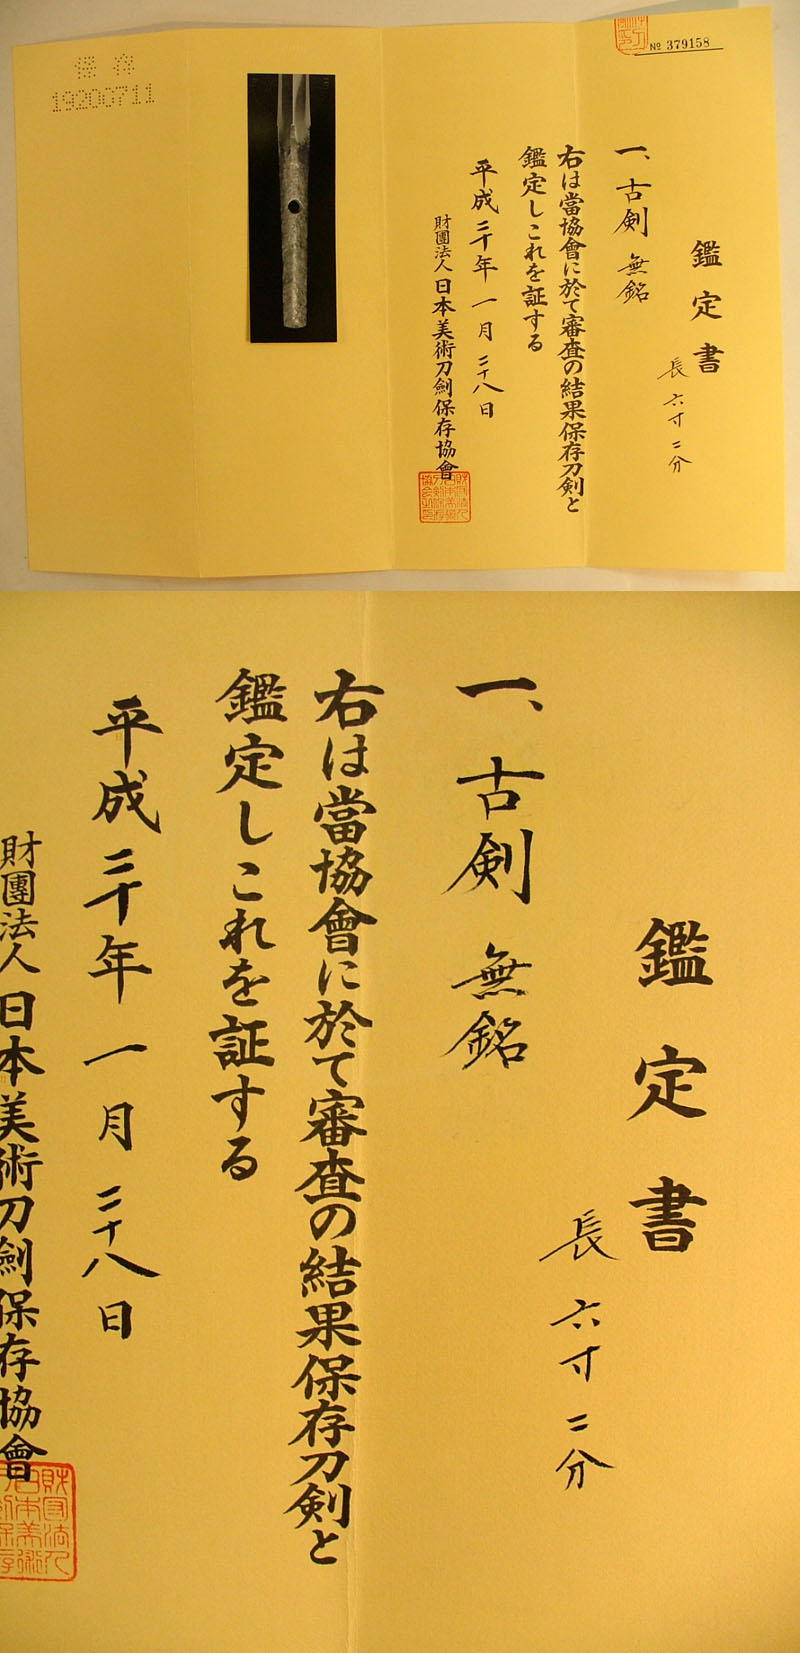 保存
19200711
№ 379158
鑑定書
長六寸二分
一、古剣 無銘
右は當協會に於て審査の結果保存刀剣と
鑑定しこれを証する
平成二十年一月二十八日
財團法人日本美術刀劍保存協會
鑑定書
長六寸二分
一、古剣 無銘
右は當協會に於て審査の結果保存刀剣と
鑑定しこれを証する
平成二十年一月二十八日
財團法人日本美術刀劍保存協會